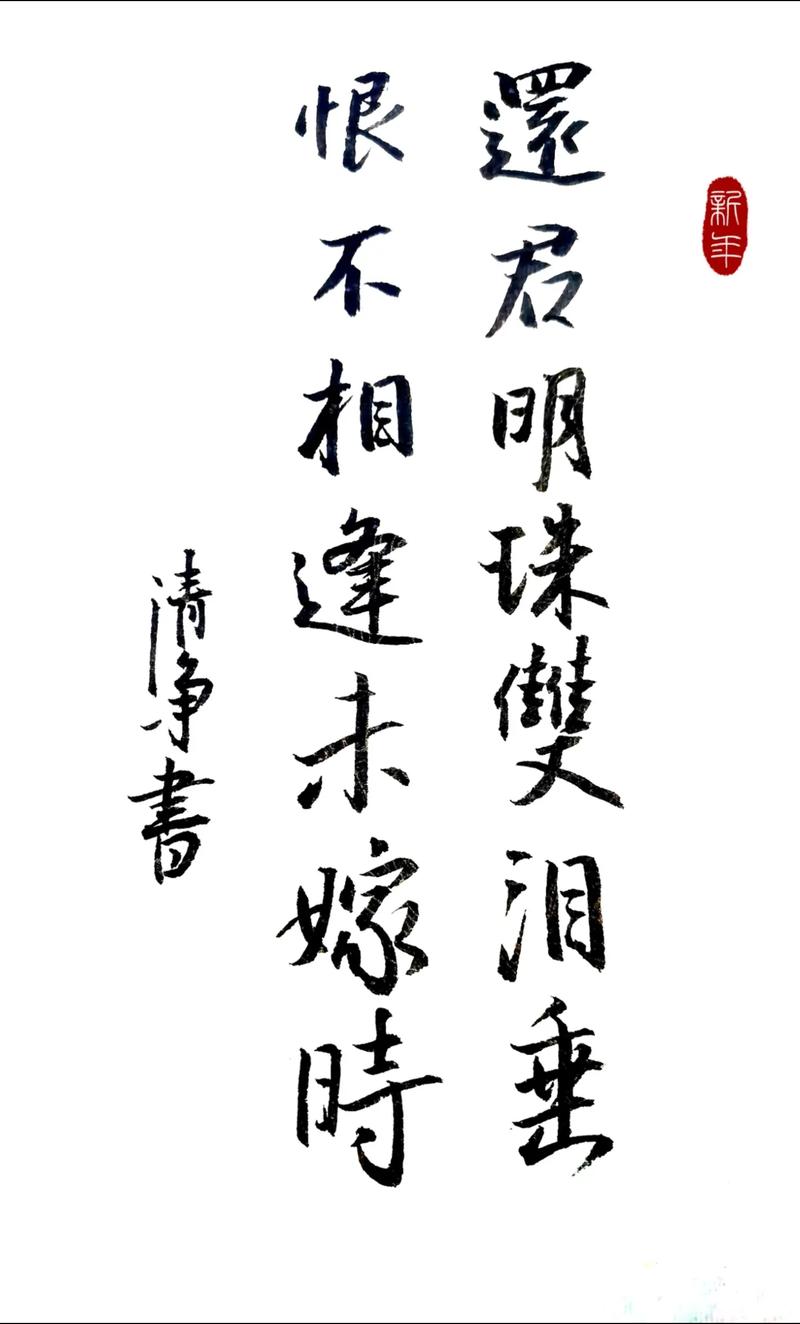 新年
還君明珠雙泪垂
恨不相逢未嫁時
清争書